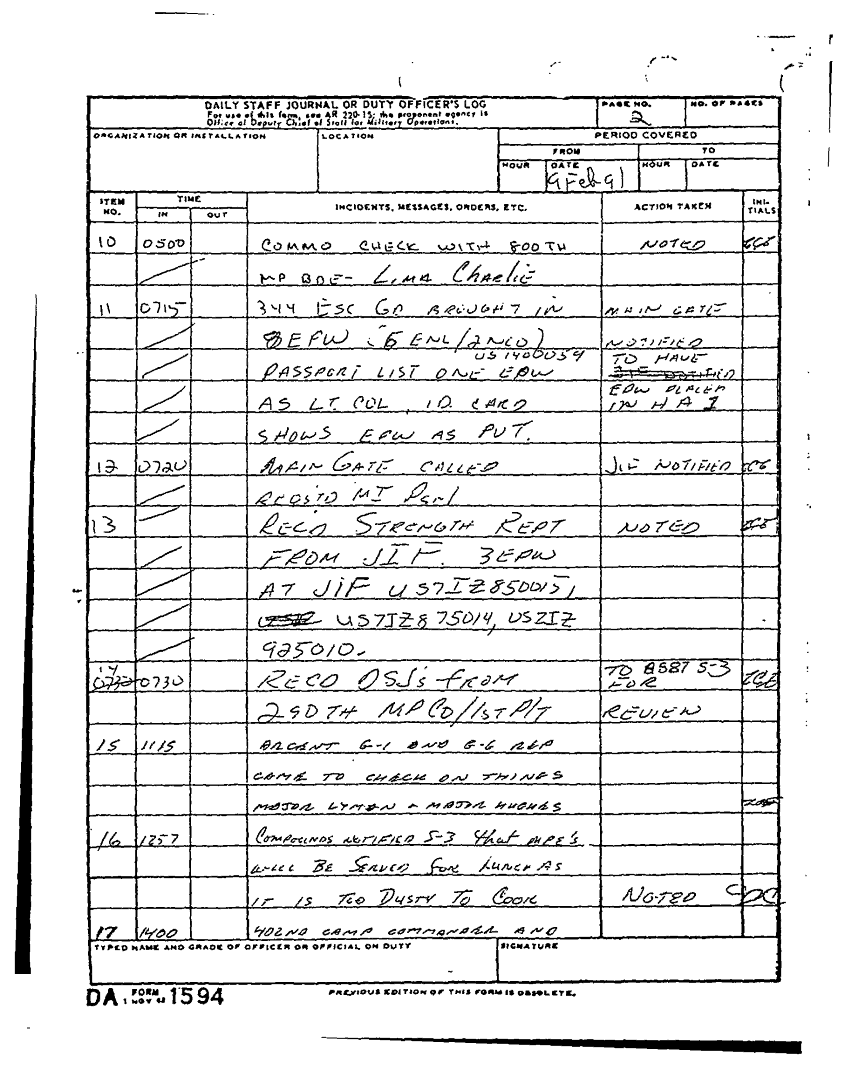 DAILY STAFF JOURNAL OR DUTY OFFICER'S LOG
For use of this form, see AR 220-15; the proponent agency is
Office of Deputy Chief of Staff for Military Operations.
PAGE NO.
2
NO. OF PAGES
ORGANIZATION OR INSTALLATION
LOCATION
PERIOD COVERED
FROM
TO
HOUR
DATE
9 Feb 91
HOUR
DATE
ITEM NO.
TIME
IN
OUT
INCIDENTS, MESSAGES, ORDERS, ETC.
ACTION TAKEN
INI-TIALS
10 0500 COMMO CHECK WITH 800TH NOTED
MP BDE- LIMA CHARLIE
11 0715 344 ESC GD BROUGHT IN MAIN GATE
8 EPW (6 ENL/2NCO) NOTIFIED
US1400059
PASSPORT LIST ONE EPW TO HAVE
AS LT. COL, I.D. CARD EPW PLACED IN H A I
SHOWS EPW AS PVT.
12 0720 MAIN GATE CALLED JIF NOTIFIED
REQSTD MI Psnl
13 RECD STRENGTH REPT NOTED
FROM JIF. 3EPW
AT JIF US7IZ850015,
US7IZ875014, US2IZ
925010.
14 0730 RECD DSJ's FROM TO BSBT S-3 FOR
290TH MPCO/1ST PLT REVIEW
15 1115 ARCENT G-1 AND G-6 REP
CAME TO CHECK ON THINGS
MAJOR LYMAN & MAJOR HUGHES
16 1257 COMPOUNDS NOTIFIED S-3 that MRE'S
WILL BE SERVED FOR LUNCH AS
IT IS TOO DUSTY TO COOK NOTED
17 1400 402ND CAMP COMMANDER AND
TYPED NAME AND GRADE OF OFFICER OR OFFICIAL ON DUTY
SIGNATURE
DA FORM 1 NOV 62 1594
PREVIOUS EDITION OF THIS FORM IS OBSOLETE.